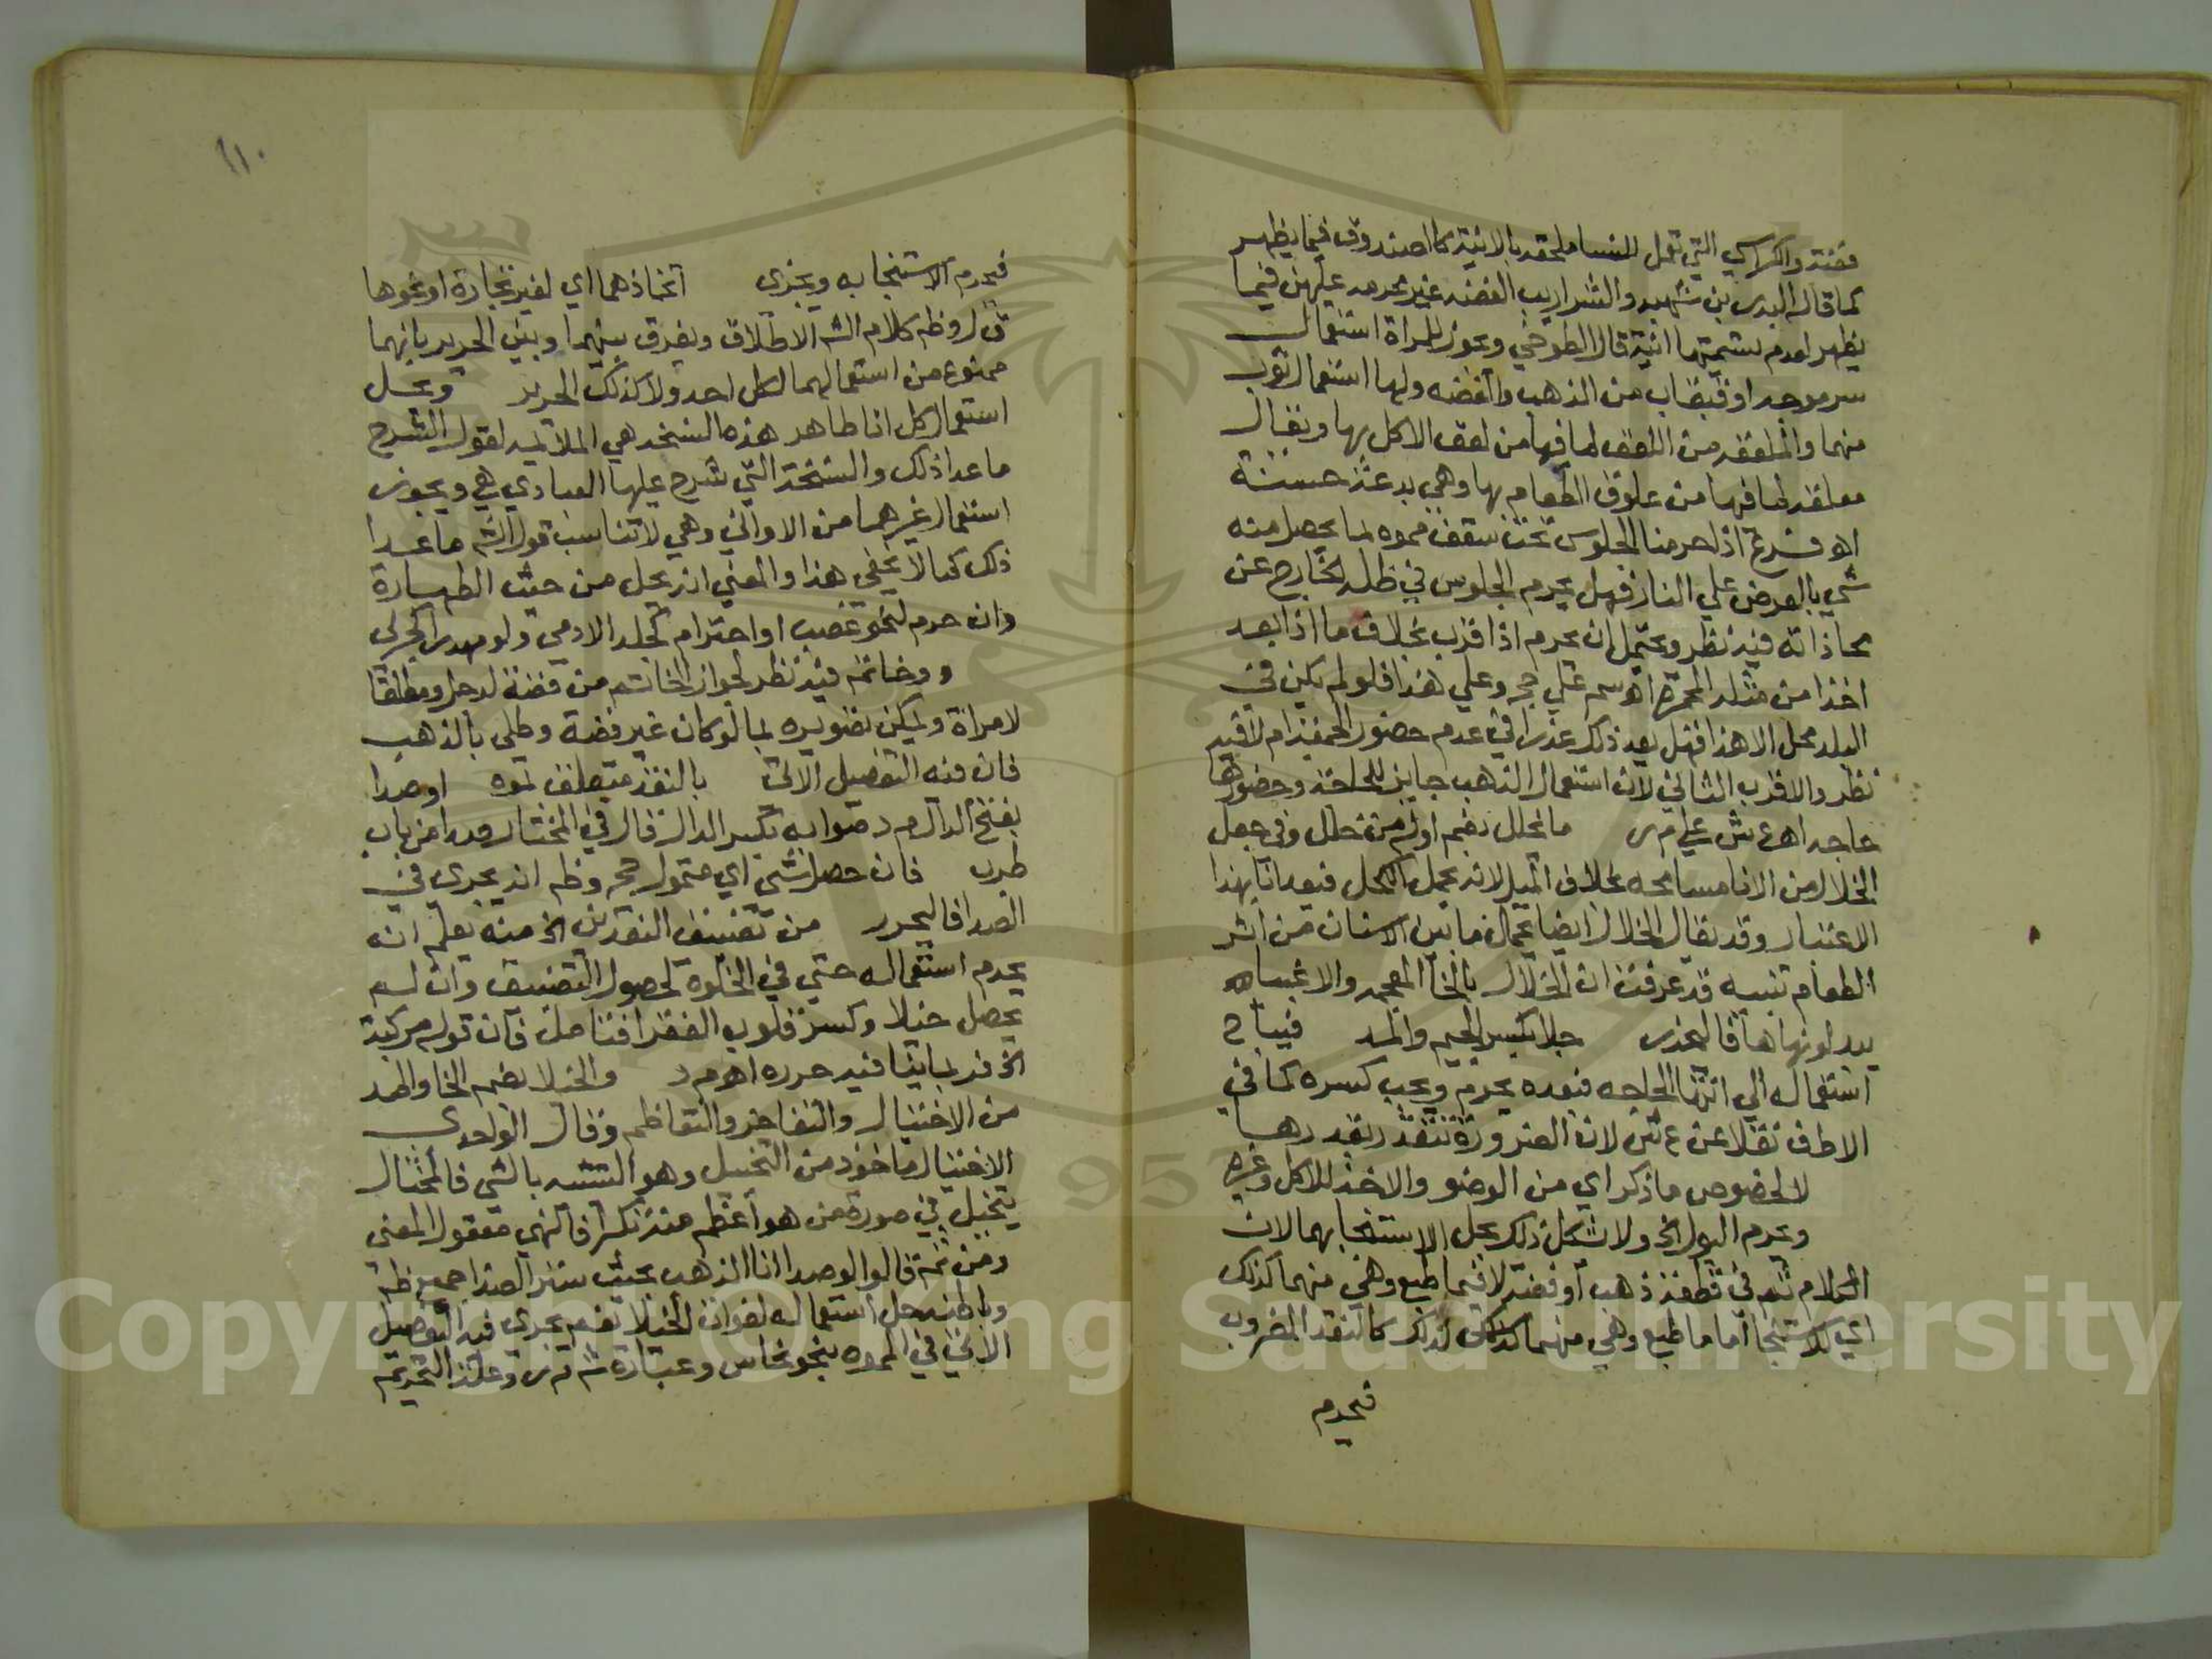 فضة والكراسي التي تعمل للنسا ملحقه بالانية كالصندوق فيما يظهر
كما قاله البدر بن شهبه والشراريب الفضه غير محرمه عليهن فيما
يظهر لعدم تسميتها انية قال الطوخي ويجوز للمراة استعمال
سرموجه او قبقاب من الذهب والفضه ولها استعمال ثوب
منهما والملعقه من اللعق لما فيها من لعق الاكل بها ويقال
معلقه لما فيها من علوق الطعام بها وهي بدعة حسنة
اه فرع اذا حرمنا الجلوس تحت سقف مموه لما يحصل منه
شي بالعرض علي النار فهل يحرم الجلوس في ظله الخارج عن
محاذاته فيه نظر ويحتمل ان يحرم اذا قرب بخلاف ما اذا بعد
اخذا من مثله المجمرة اه سم علي حج وعلي هذا فلو لم يكن في
البلد محل الا هذا فهل يعد ذلك عذرا في عدم حضور الجمعة ام لا فيه
نظر والاقرب الثاني لان استعمال الذهب جايز للحاجة وحضورها
حاجه اه ع ش علي م ر ما تخلل بضم اوله من خلل وفي جعل
الخلال من الانا مسامحه بخلاف الميل لانه يحمل الكحل فيعد انا بهذا
الاعتبار وقد يقال الخلال ايضا يحمل ما بين الاسنان من اثر
الطعام تنبيه قد عرفت ان الخلال بالخا المعجمه والاغبياه
يبدلونها ها فاليحذر جلا بكسر الجيم والمد فيباح
استعماله الي انتها الحاجه فبعده يحرم ويجب كسره كما في
الاطف نقلا عن ع ش لان الضرورة تتقدر بقدرها
لا لخصوص ما ذكر اي من الوضو والاخذ للاكل وغيره
ويحرم البول الخ ولا يشكل ذلك بحل الاستنجا بهما لان
الكلام ثم في قطعة ذهب او فضة لا فيما طبع وهي منهما كذلك
اي للاستنجا اما ما طبع وهي منهما كذلك لذلك كالنقد المضروب
فيحرم
١١٠
فيحرم الاستنجا به ويجزى اتخاذهما اي لغير تجارة او نحوها
ق ل وظ كلام الش الاطلاق ويفرق بينهما وبين الحرير بانهما
ممنوع من استعمالهما لكل احد ولا كذلك الحرير ويحل
استعمال كل انا طاهر هذه النسخه هي الملايمه لقول الشرح
ما عدا ذلك والنسخة التي شرح عليها العبادي هي ويجوز
استعمال غيرهما من الاواني وهي لا تناسب قول الش ما عدا
ذلك كما لا يخفي هذا والمعني انه يحل من حيث الطهارة
وان حرم لنحو غصب او احترام كجلد الادمي ولو مهدرا كحربي
وخاتم فيه نظر لجواز الخاتم من فضة لرجل ومطلقا
لامراة ويمكن تصويره بما لو كان غير فضة وطلي بالذهب
فان فيه التفصيل الاتي بالنقد متعلق بموه او صدا
بفتح الدال م د صوابه بكسر الدال قال في المختار وهو من باب
طرب فان حصل شي اي متمول حج وظ انه يجري في
الصدا فاليحرر من تضييق النقدين الخ منه يعلم انه
يحرم استعماله حتي في الخلوة لحصول التضييق وان لم
يحصل خيلا وكسر قلوب الفقرا فتامله فان قوله مركبة
الخ قد ينافيه حرره اه م د والخيلا بضم الخا والمد
من الاختيال والتفاخر والتعاظم وقال الواحدي
الاختيال ماخوذ من التخيل وهو التشبه بالشي فالمختال
يتخيل في صورة من هو اعظم منه تكبرا فالنهي معقول المعني
ومن ثم قالوا لو صدا انا الذهب بحيث ستر الصدا جميع ظاهره
وباطنه حل استعماله لفوات الخيلا نعم يجري فيه التفصيل
الاتي في المموه بنحو نحاس وعبارة ش م ر وعلة التحريم
Copyright © King Saud University
1957